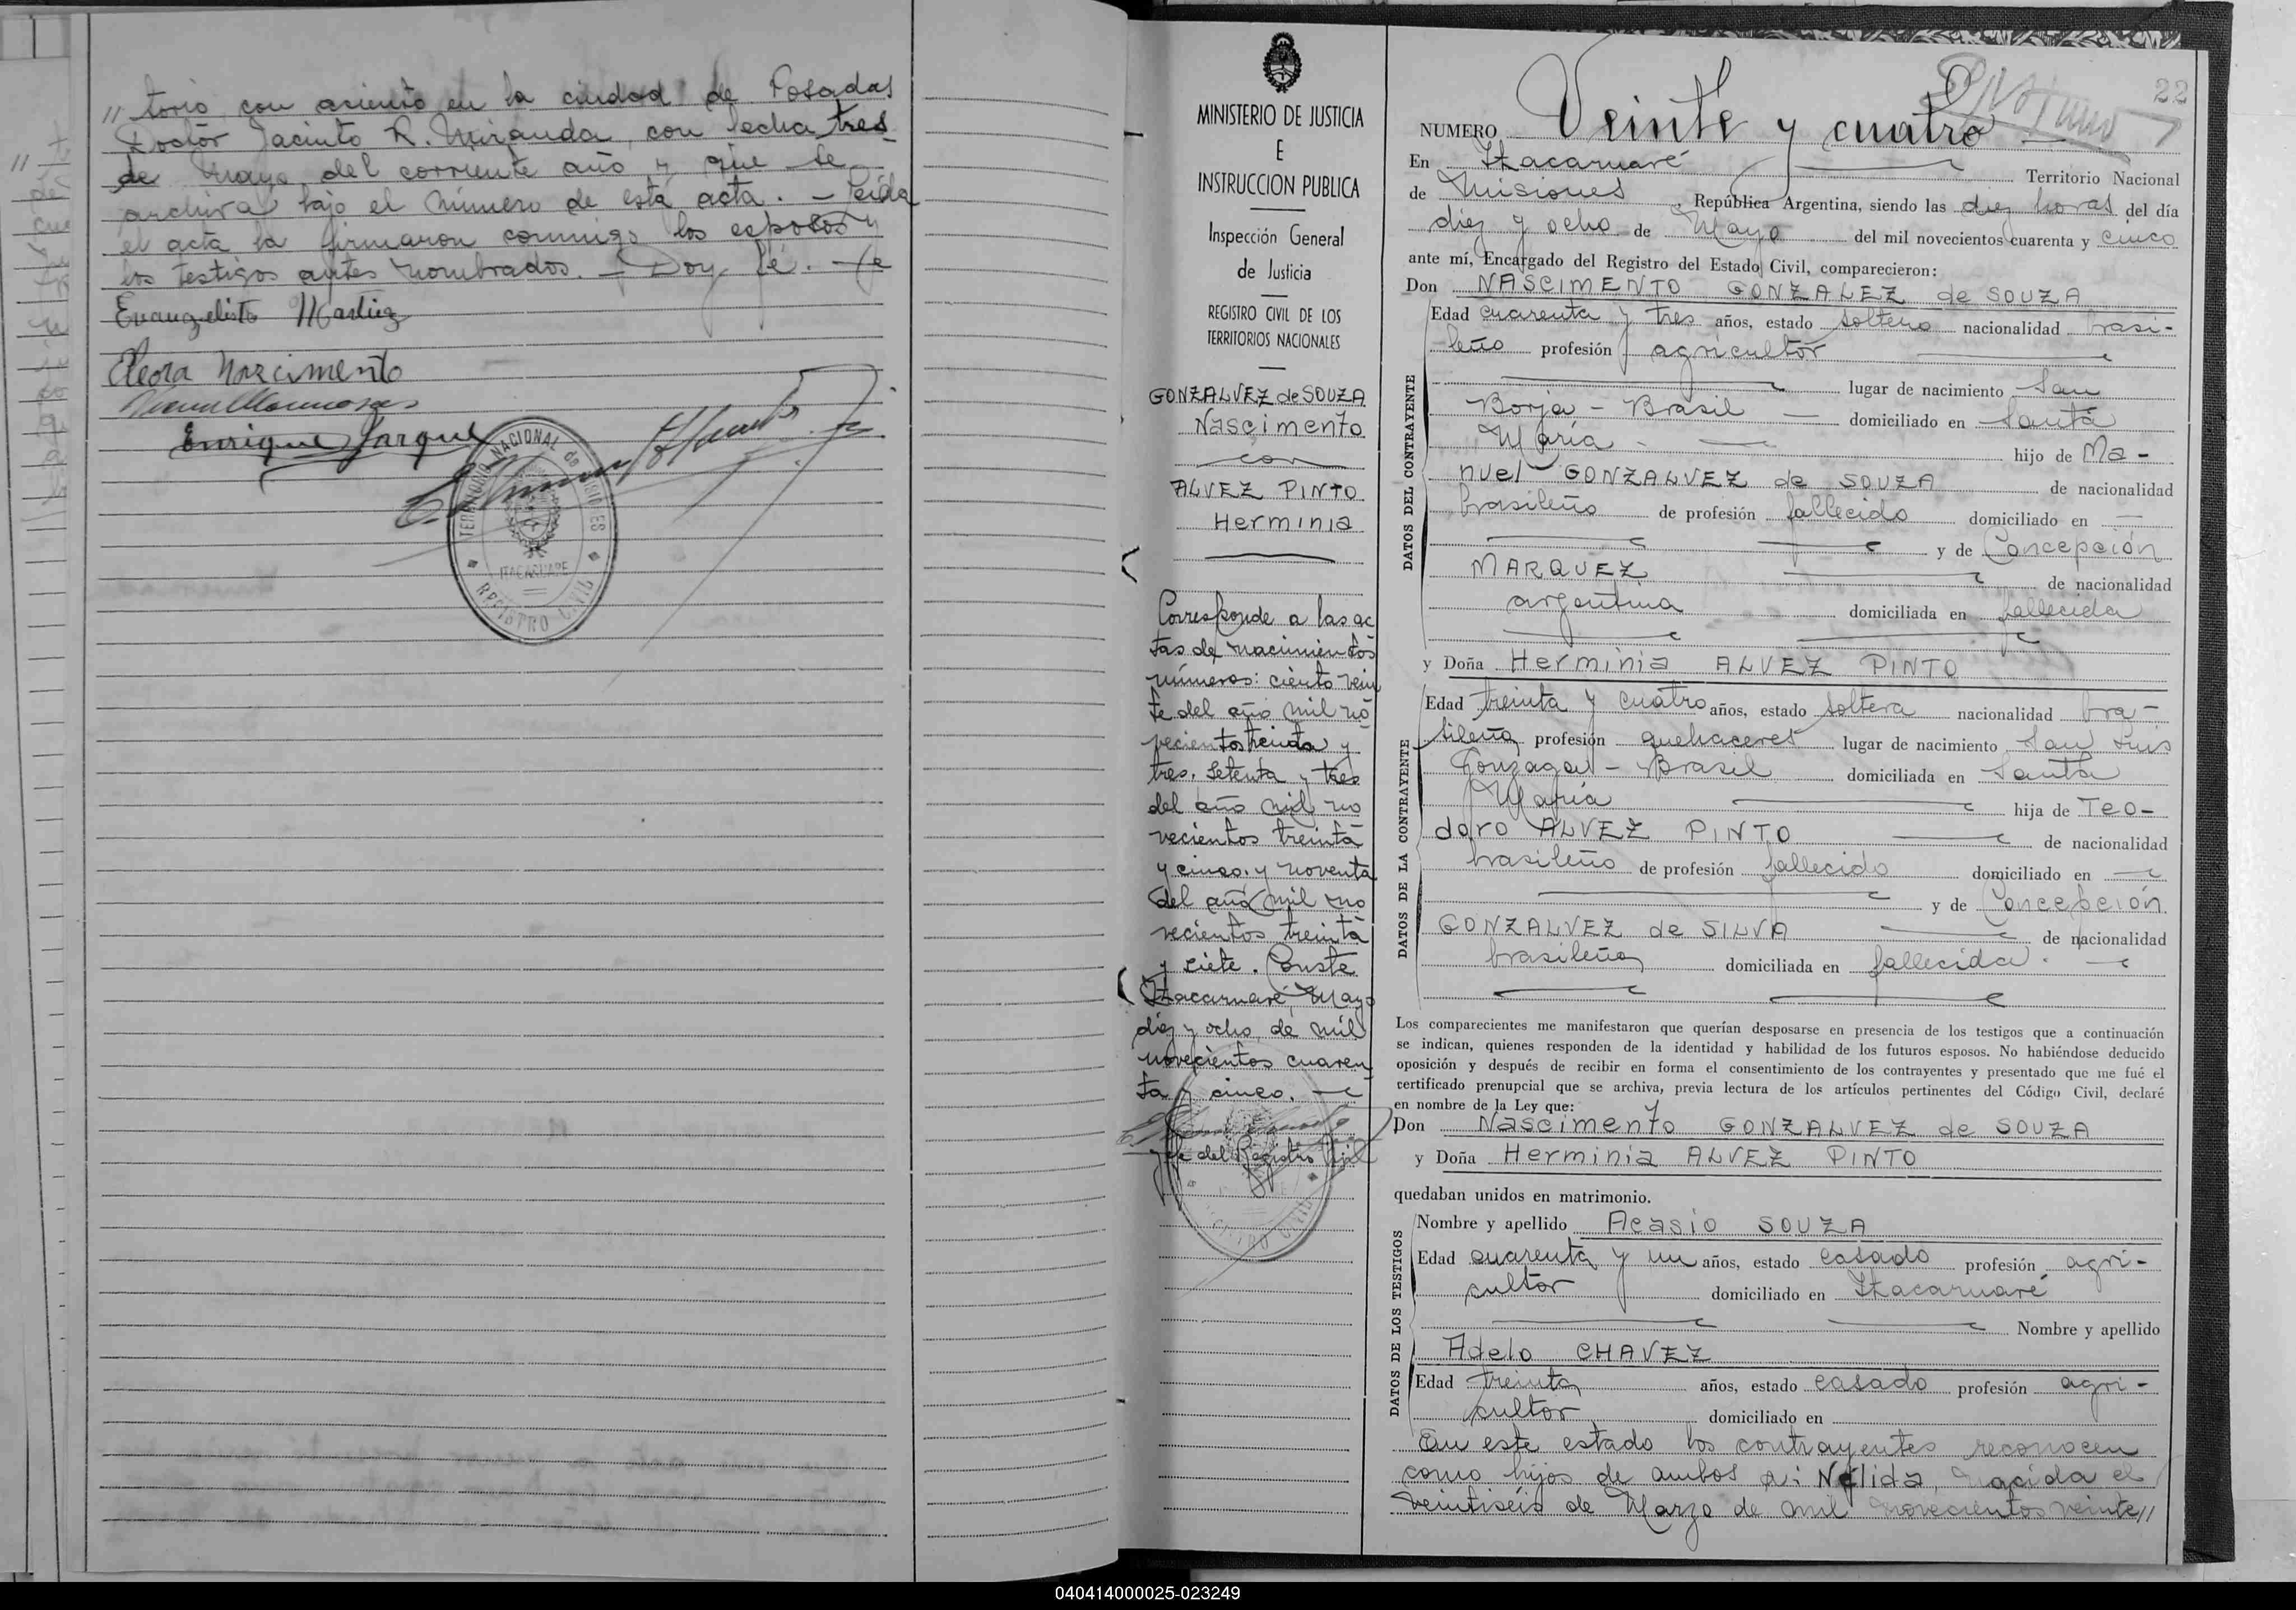 // torio, con asiento en la ciudad de Posadas
Doctor Jacinto R. Miranda, con fecha tres
de Mayo del corriente año y que se
archiva bajo el número de esta acta. - Leida
el acta la firmaron conmigo los esposos y
los testigos antes nombrados. - Doy fé. -
Evangelista
Eleora Nascimento
Enrique Jarque
TERRITORIO NACIONAL de MISIONES
ITACARUARE
REGISTRO CIVIL
MINISTERIO DE JUSTICIA
E
INSTRUCCION PUBLICA
Inspección General
de Justicia
REGISTRO CIVIL DE LOS
TERRITORIOS NACIONALES
GONZALVEZ de SOUZA
Nascimento
con
ALVEZ PINTO
Herminia
Corresponde a las ac
tas de nacimientos
números: ciento vein
te del año mil no
vecientos treinta y
tres. Setenta y tres
del año mil no
vecientos treinta
y cinco. y noventa
del año mil no
vecientos treinta
y siete. Conste
Itacaruaré Mayo
diez y ocho de mil
novecientos cuaren
ta y cinco.
Jefe del Registro Civil
REGISTRO CIVIL
22
NUMERO Veinte y cuatro
En Itacaruaré Territorio Nacional
de Misiones, República Argentina, siendo las diez horas del día
diez y ocho de Mayo del mil novecientos cuarenta y cinco
ante mí, Encargado del Registro del Estado Civil, comparecieron:
Don NASCIMENTO GONZALEZ de SOUZA
DATOS DEL CONTRAYENTE
Edad cuarenta y tres años, estado soltero nacionalidad brasi-
leño profesión agricultor
lugar de nacimiento San
Borja - Brasil domiciliado en Santa
María hijo de Ma-
nuel GONZALVEZ de SOUZA de nacionalidad
brasileño de profesión fallecido domiciliado en
y de Concepción
MARQUEZ de nacionalidad
argentina domiciliada en fallecida
y Doña Herminia ALVEZ PINTO
DATOS DE LA CONTRAYENTE
Edad treinta y cuatro años, estado soltera nacionalidad bra-
sileña profesión quehaceres lugar de nacimiento San Luis
Gonzaga - Brasil domiciliada en Santa
María hija de Teo-
doro ALVEZ PINTO de nacionalidad
brasileño de profesión fallecido domiciliado en
y de Concepción
GONZALVEZ de SILVA de nacionalidad
brasileña domiciliada en fallecida.
Los comparecientes me manifestaron que querían desposarse en presencia de los testigos que a continuación
se indican, quienes responden de la identidad y habilidad de los futuros esposos. No habiéndose deducido
oposición y después de recibir en forma el consentimiento de los contrayentes y presentado que me fué el
certificado prenupcial que se archiva, previa lectura de los artículos pertinentes del Código Civil, declaré
en nombre de la Ley que:
Don Nascimento GONZALVEZ de SOUZA
y Doña Herminia ALVEZ PINTO
quedaban unidos en matrimonio.
DATOS DE LOS TESTIGOS
Nombre y apellido Acasio SOUZA
Edad cuarenta y un años, estado casado profesión agri-
cultor domiciliado en Itacaruaré
Nombre y apellido
Adelo CHAVEZ
Edad treinta años, estado casado profesión agri-
cultor domiciliado en
En este estado los contrayentes reconocen
como hijos de ambos a: Nélida, nacida el
veintiséis de Marzo de mil novecientos veinte//
040414000025-023249